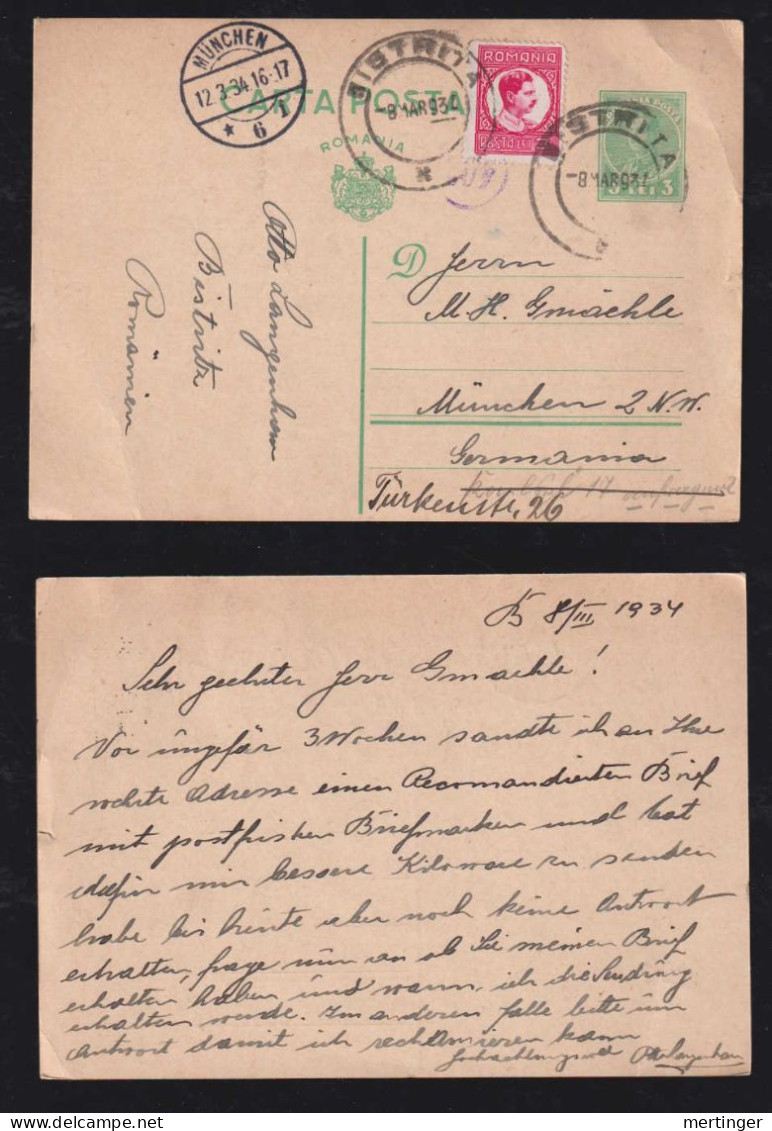 MÜNCHEN
12.3.34.16-17
* 6 1
CARTA POSTA
ROMANIA
BISTRITA
-8 MAR 934
ROMANIA
BISTRITA
-8 MAR 934
3 LEI 3
Otto Langenhorn
Bistritz
Romänien
D Herrn
M. H. Gmächle
München 2 N.W.
Germania
Türkenstr. 26
B 8/III 1934
Sehr geehrter Herr Gmaechle!
Vor ungefär 3 Wochen sandte ich an Ihre
werte Adresse einen Recomandierten Brief
mit postfrishen Briefmarken und bat
dafür mir bessere Kiloware zu senden
habe bis heute aber noch keine Antwort
erhalten, frage nun an ob Sie meinen Brief
erhalten haben und wann ich die Sendung
erhalten werde. Im anderen falle bitte um
Antwort damit ich reclamieren kann
Hochachtungsvoll
mertinger
www.delcampe.net